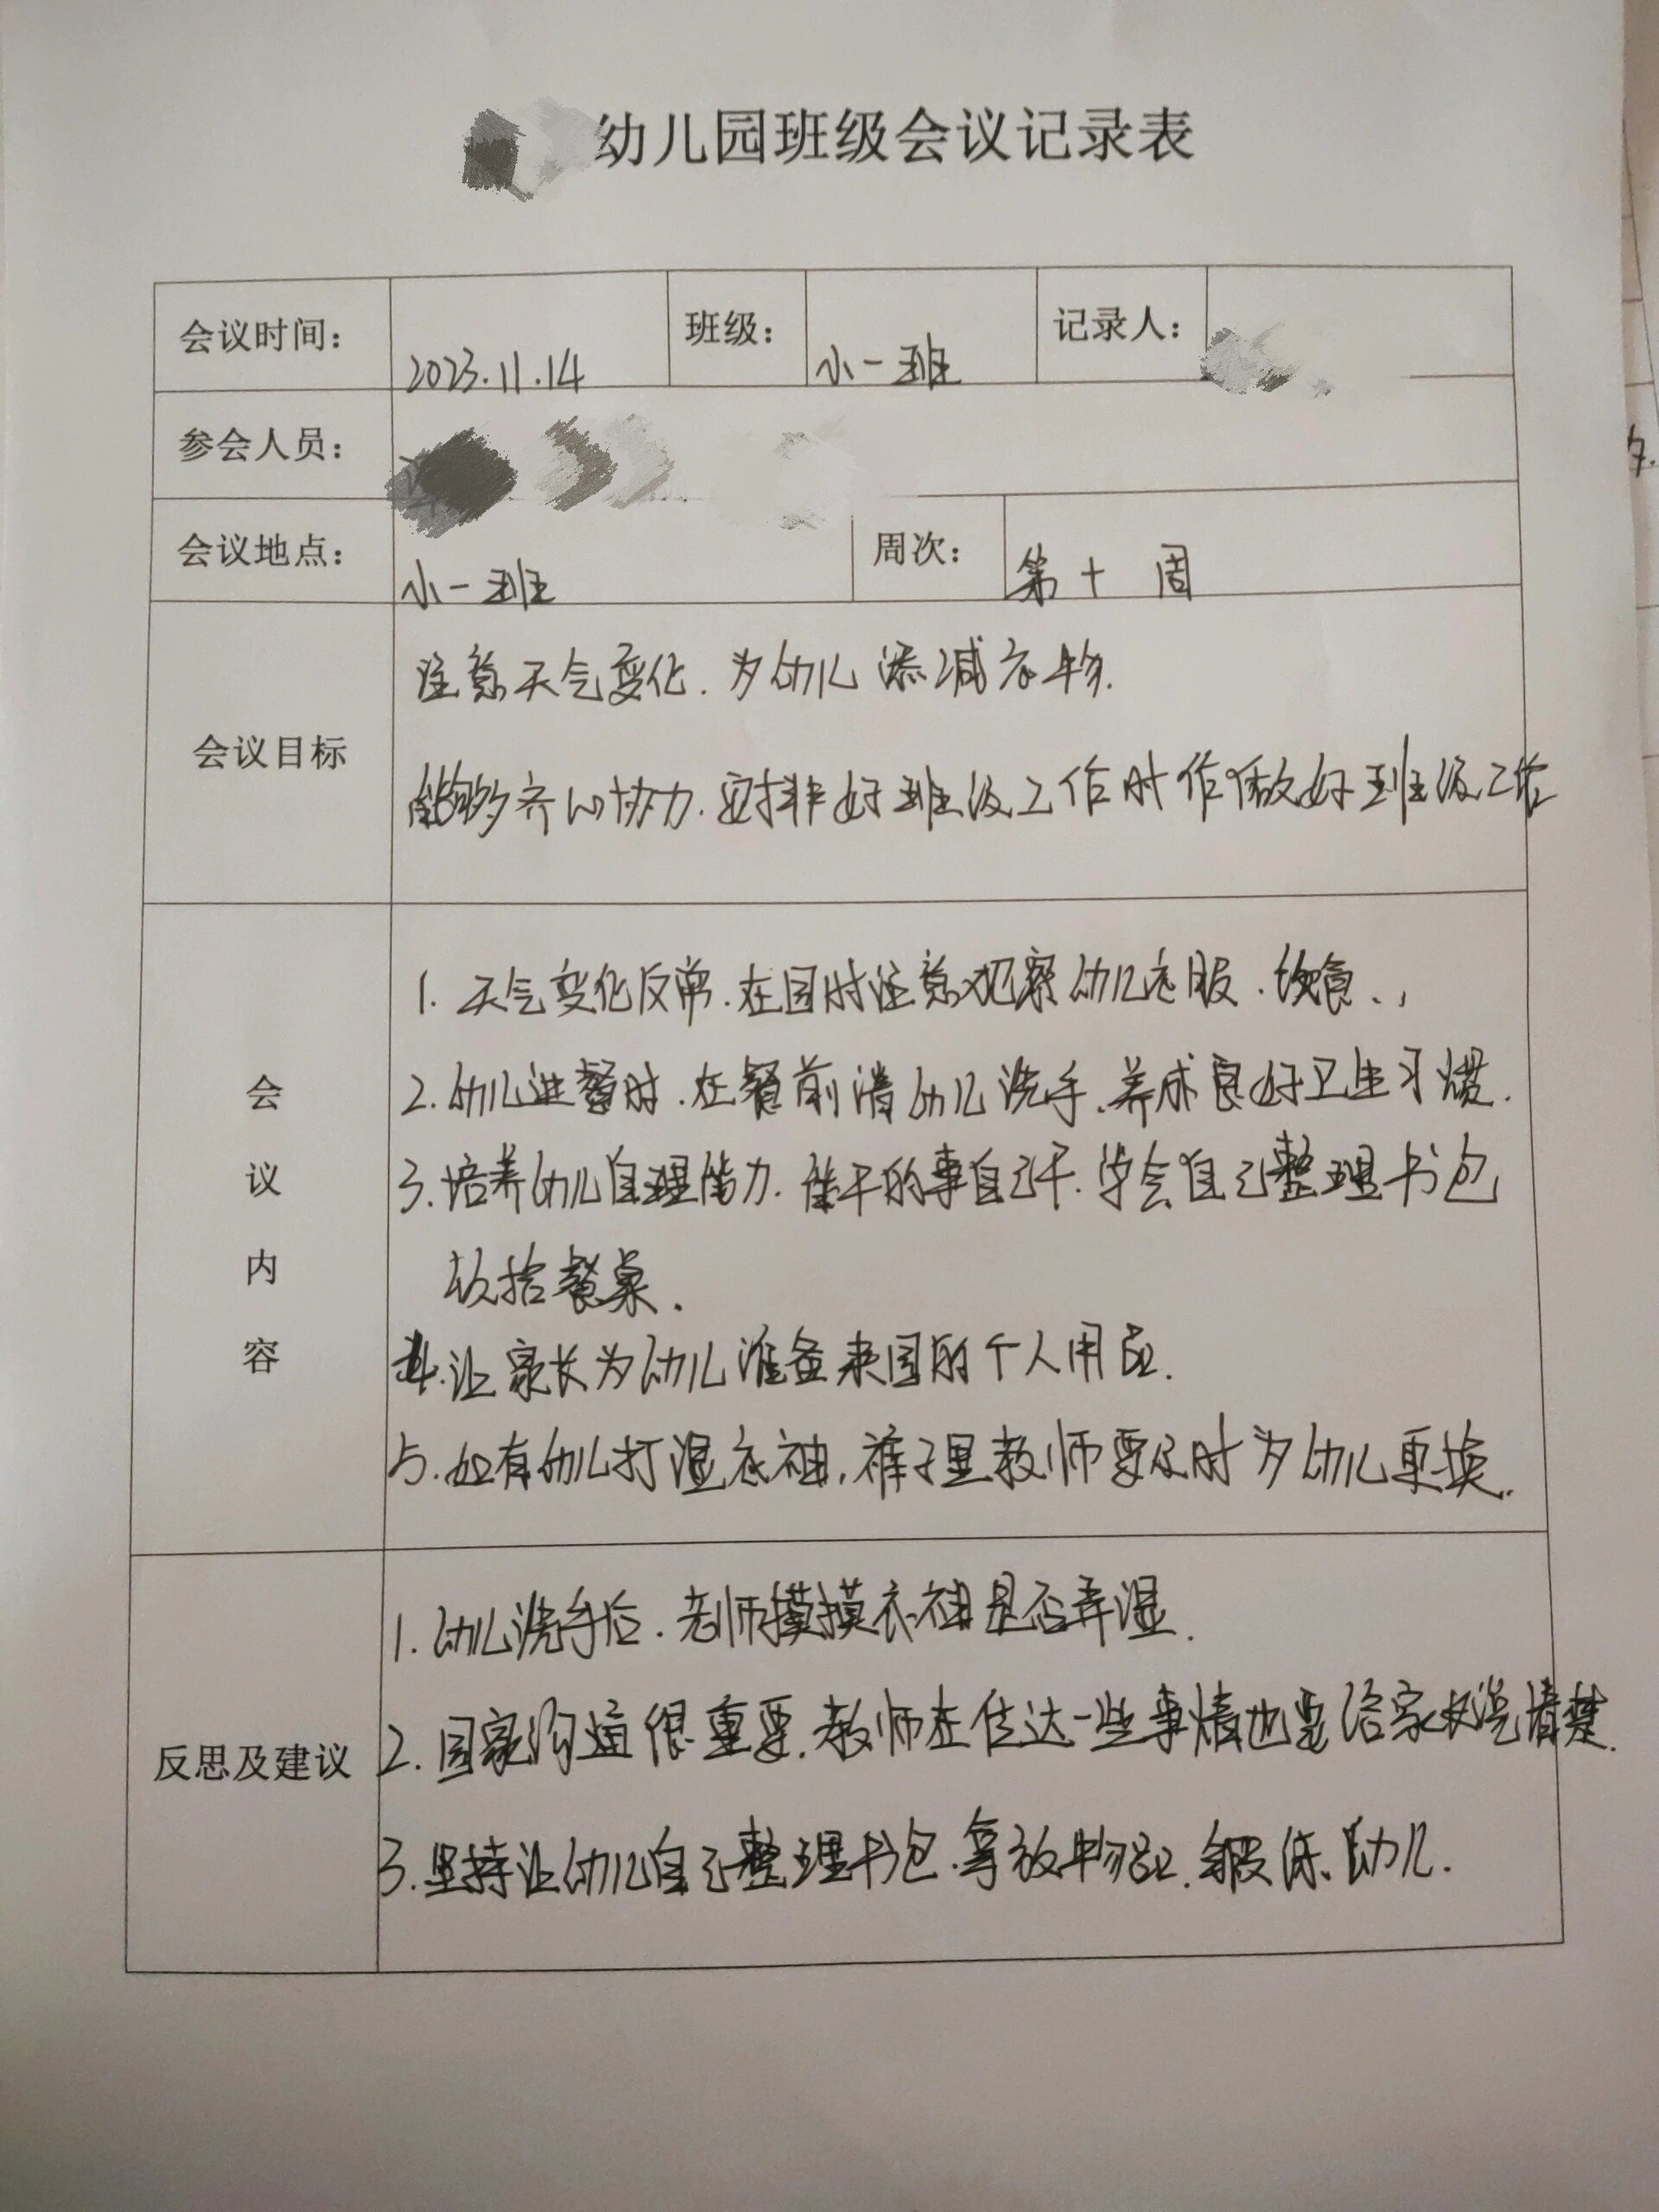 幼儿园班级会议记录表
会议时间: 2023.11.14 班级: 小一班 记录人:
参会人员:
会议地点: 小一班 周次: 第十周
会议目标
注意天气变化.为幼儿添减衣物.
能够齐心协力.安排好班级工作时作做好班级工作
会议内容
1.天气变化反常.在园时注意观察幼儿衣服.饮食、,
2.幼儿进餐时.在餐前请幼儿洗手.养成良好卫生习惯.
3.培养幼儿自理能力.能干的事自己干.学会自己整理书包
收拾餐桌.
4.让家长为幼儿准备来园的个人用品.
5.如有幼儿打湿衣袖,裤子里教师要及时为幼儿更换.
反思及建议
1.幼儿洗手后.老师摸摸衣袖是否弄湿.
2.园家沟通很重要.教师在传达一些事情也要给家长说清楚.
3.坚持让幼儿自己整理书包.拿放物品.锻炼幼儿.